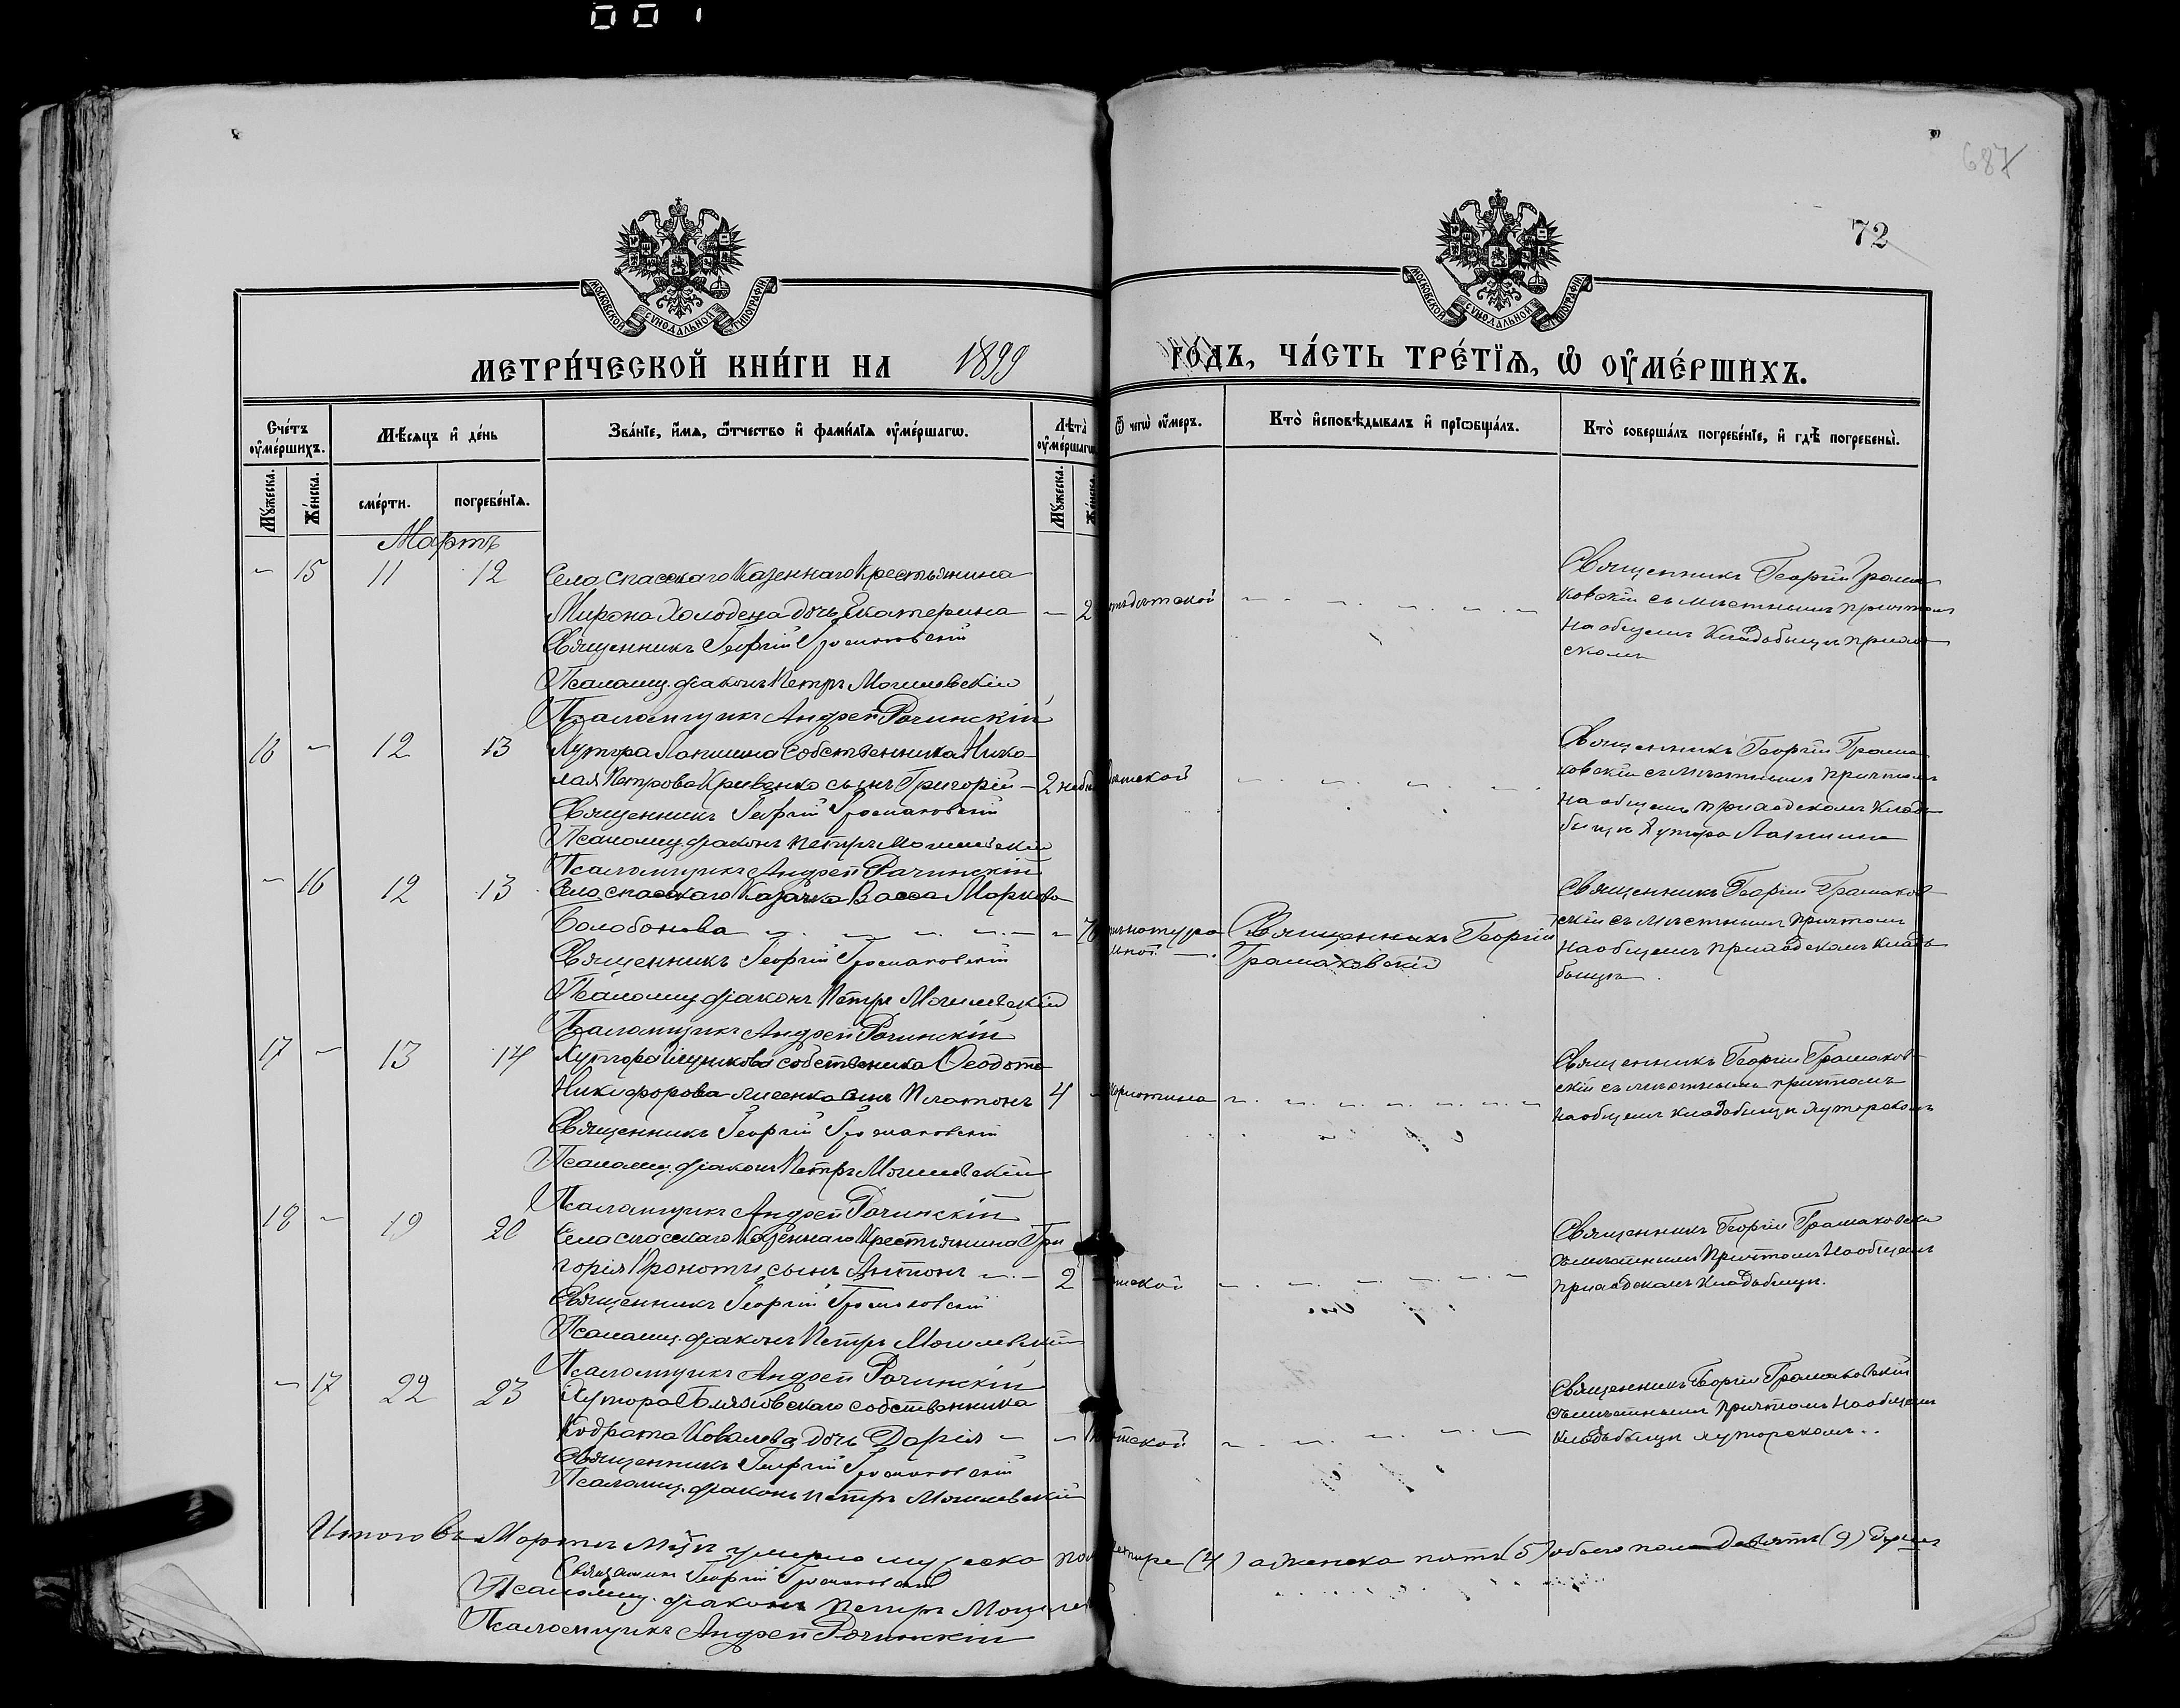 001
687
72
МОСКОВСКОЙ СѴНОДАЛЬНОЙ ТИПОГРАФІИ
МОСКОВСКОЙ СѴНОДАЛЬНОЙ ТИПОГРАФІИ
МЕТРИ́ЧЕСКОЙ КНИ́ГИ НА 1899 ГОДЪ, ЧА́СТЬ ТРЕ́ТЇѦ, Ѡ҆ ОУ҆МЕ́РШИХЪ.
Сче́тъ оу҆ме́ршихъ.
Мѣ́сяцъ и҆ де́нь
Зва́нїе, и҆́мѧ, ѻ҆́тчество и҆ фами́лїѧ оу҆ме́ршагѡ.
Лѣта̀ оу҆ме́ршагѡ
Ѿ чегѡ̀ оу҆́меръ.
Кто̀ и҆сповѣ́дывалъ и҆ прїѡбща́лъ.
Кто̀ соверша́лъ погребе́нїе, и҆ гдѣ̀ погребены̀.
Мꙋ́жеска.
Же́нска.
сме́рти.
погребе́нїѧ.
Мꙋ́жеска.
Же́нска.
Мартъ
- 15 11 12 Села Спасскаго Казеннаго Крестьянина
Мирона Холодеца дочь Екатерина - 2
Священникъ Георгій Громаковскій
Псаломщ. діаконъ Петръ Могилевскій
Псаломщикъ Андрей Рочинскій
Священникъ Георгій Грома
ковскій съ мѣстнымъ причтомъ
На общемъ Кладбищѣ приход
скомъ
16 - 12 13 Хутора Лапшина Собственника Нико-
лая Петрова Кривенко сынъ Григорій - 2 нед
Священникъ Георгій Громаковскій
Псаломщ. діаконъ Петръ Могилевскій
Псаломщикъ Андрей Рочинскій
Священникъ Георгій Грома
ковскій съ мѣстнымъ причтомъ
на общемъ приходскомъ Клад
бищѣ Хутора Лапшина
- 16 12 13 Села Спасскаго Казачка Васса Маркова
Болобонова - 70
Священникъ Георгій Громаковскій
Псаломщ. діаконъ Петръ Могилевскій
Псаломщикъ Андрей Рочинскій
Священникъ Георгій
Громаковскій
Священникъ Георгій Громаков
скій съ мѣстнымъ причтомъ
На общемъ приходскомъ клад
бищѣ
17 - 13 14 Хутора собственика Ѳеодота
Никифорова Лисенка сынъ Платонъ 4 -
Священникъ Георгій Громаковскій
Псаломщ. діаконъ Петръ Могилевскій
Псаломщикъ Андрей Рочинскій
Священникъ Георгій Громаков
скій съ мѣстнымъ причтомъ
На общемъ кладбищѣ хуторскомъ
18 - 19 20 Села Спасскаго Казеннаго Крестьянина Гри
горія сынъ Антонъ - 2 -
Священникъ Георгій Громаковскій
Псаломщ. діаконъ Петръ Могилевскій
Псаломщикъ Андрей Рочинскій
Священникъ Георгій Громаковскій
съ мѣстнымъ Причтомъ На общемъ
приходскомъ Кладбищѣ.
- 17 22 23 Хутора собственника
Кодрата Ковалева дочь Дарія -
Священникъ Георгій Громаковскій
Псаломщ. діаконъ Петръ Могилевскій
Священникъ Георгій Громаковскій
съ мѣстнымъ причтомъ На общемъ
Кладбищѣ хуторскомъ.
Итого въ Мартѣ м-цѣ умерло мужеска пола четыре (4) а женска пять (5) обоего пола девять (9) душъ
Священникъ Георгій Громаковскій
Псаломщ. діаконъ Петръ Могилев
Псаломщикъ Андрей Рочинскій